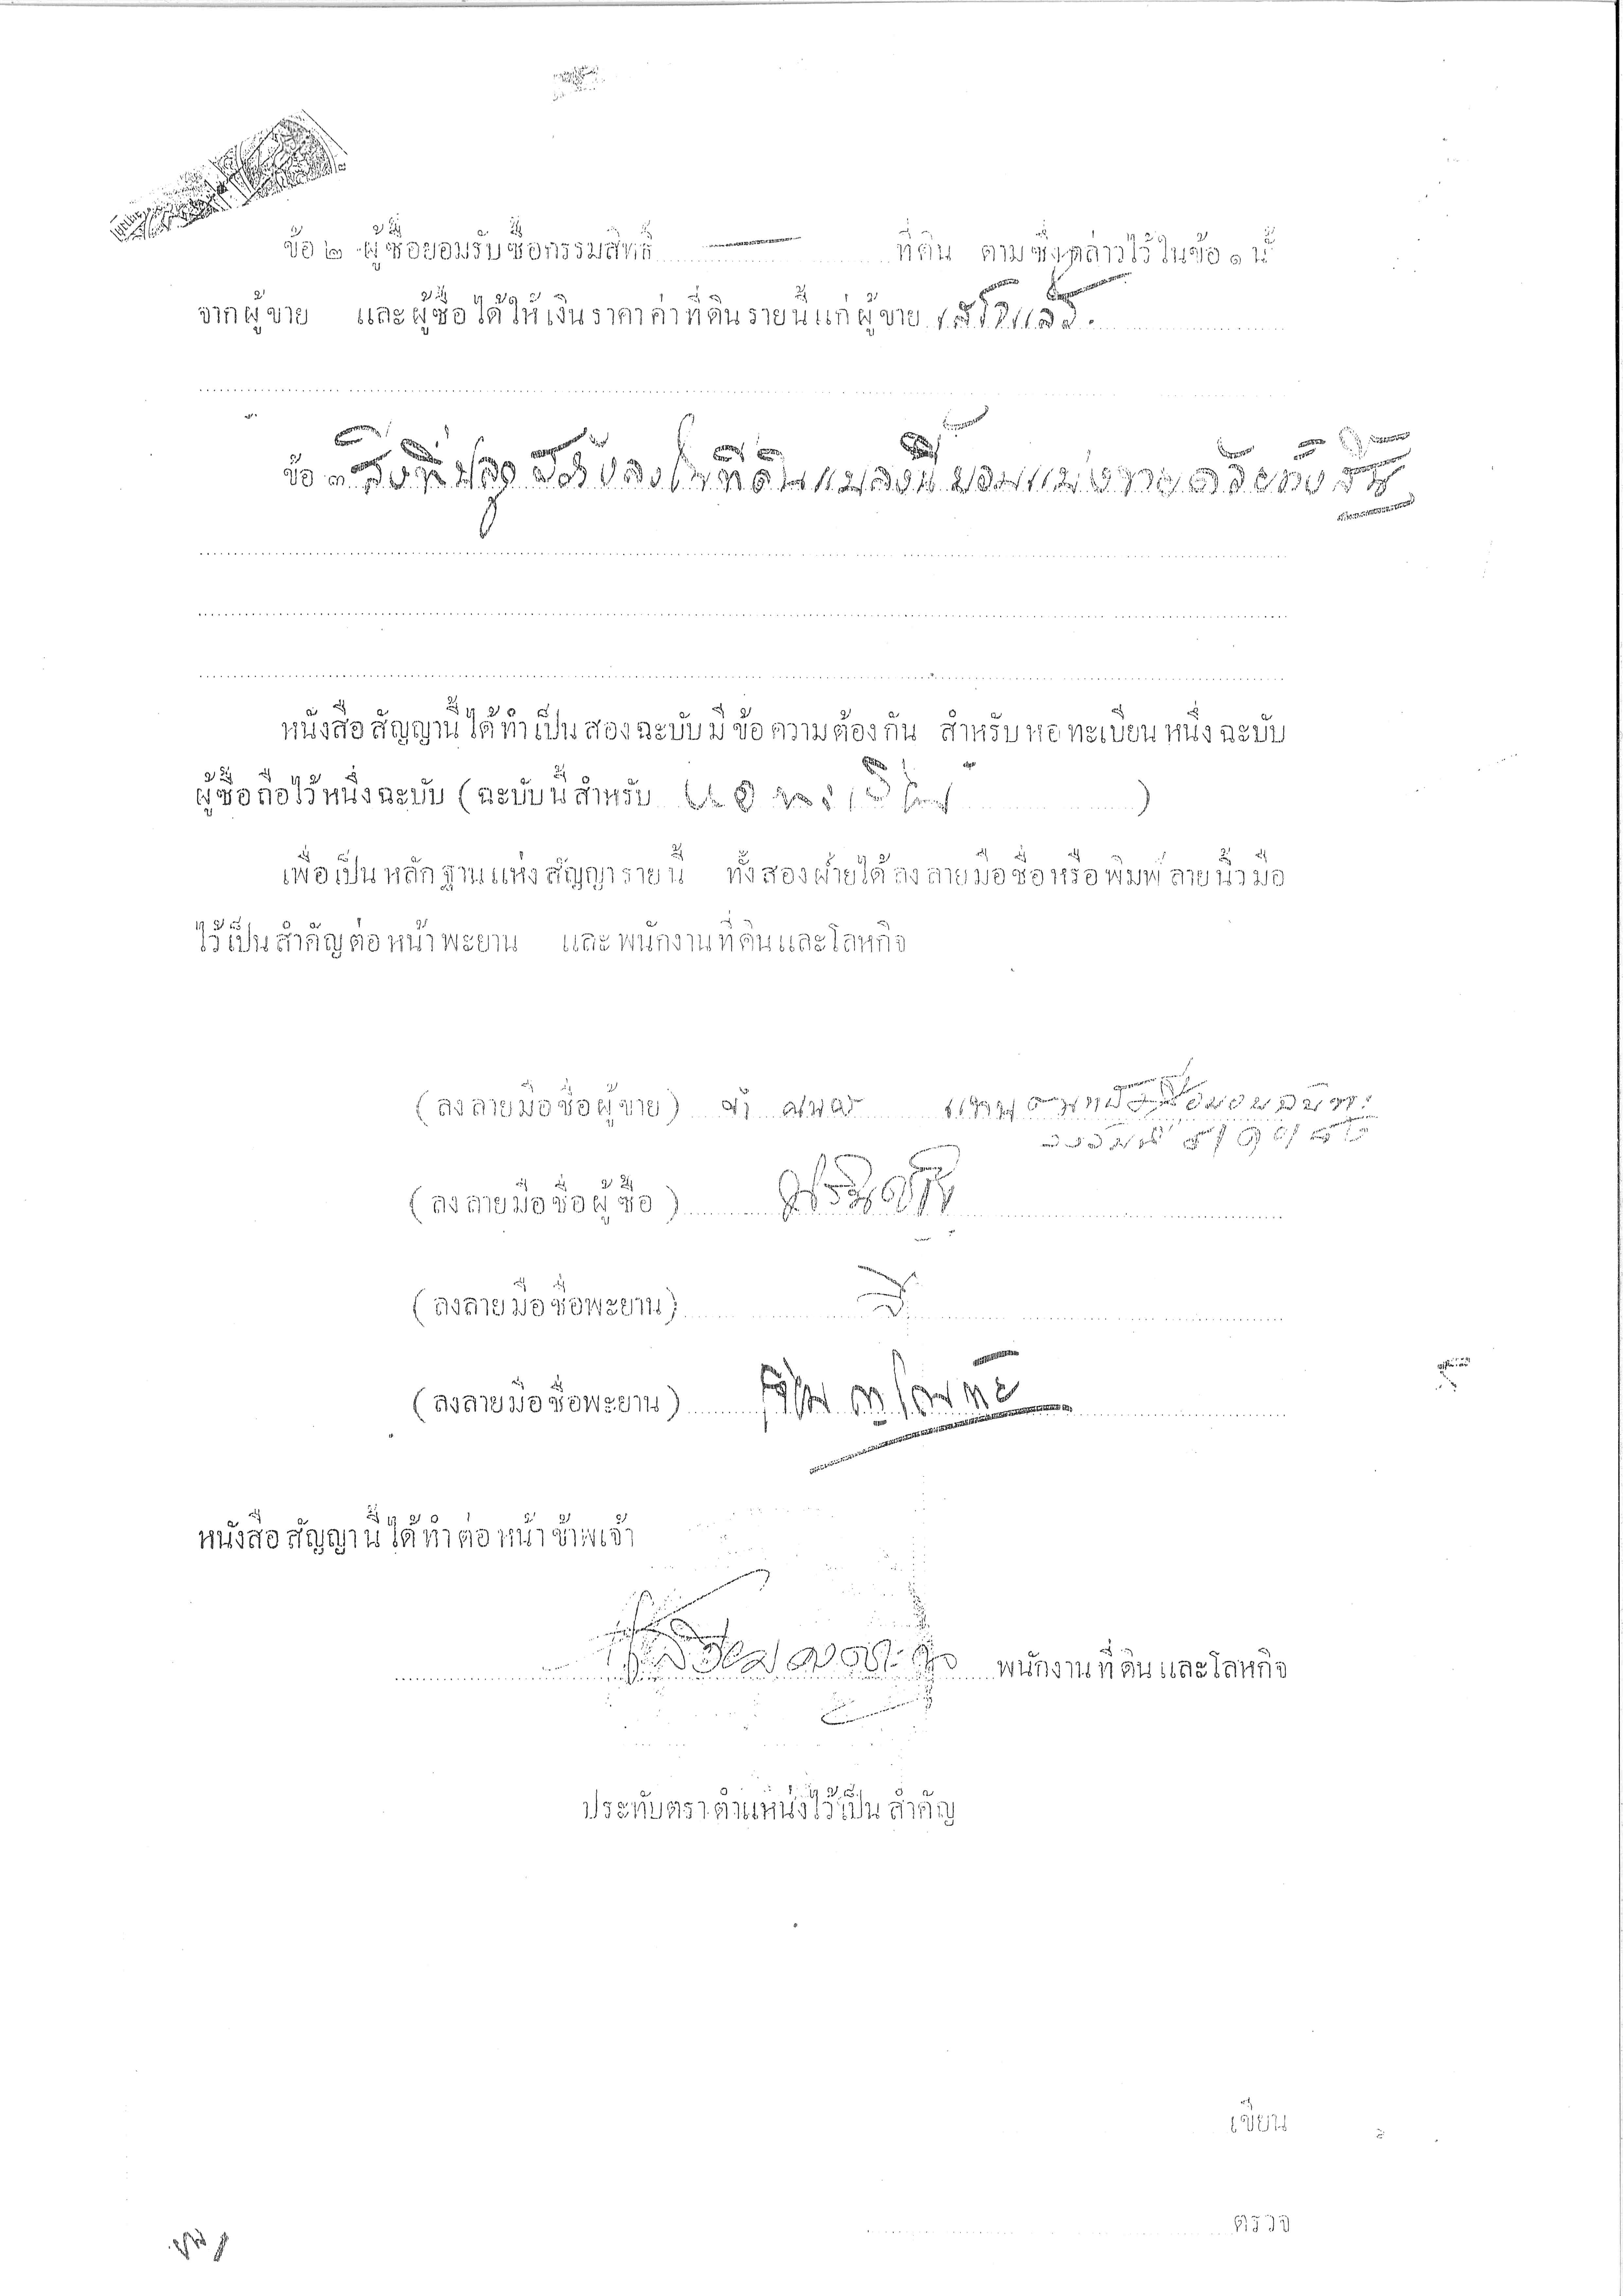 ข้อ ๒ ผู้ซื้อยอมรับซื้อกรรมสิทธิ์ ที่ดิน ตามซึ่งกล่าวไว้ในข้อ ๑ นั้น
จากผู้ขาย และผู้ซื้อได้ให้เงินราคาค่าที่ดินรายนี้แก่ผู้ขาย เสร็จแล้ว
ข้อ ๓ สิ่งที่ปลูกสร้างลงในที่ดินแปลงนี้ยอมแบ่งขายด้วยทั้งสิ้น
หนังสือสัญญานี้ได้ทำเป็นสองฉะบับมีข้อความต้องกัน สำหรับหอทะเบียนหนึ่งฉะบับ
ผู้ซื้อถือไว้หนึ่งฉะบับ (ฉะบับนี้สำหรับ หอทะเบียน )
เพื่อเป็นหลักฐานแห่งสัญญารายนี้ ทั้งสองฝ่ายได้ลงลายมือชื่อหรือพิมพ์ลายนิ้วมือ
ไว้เป็นสำคัญต่อหน้าพะยาน และพนักงานที่ดินและโลหกิจ
(ลงลายมือชื่อผู้ขาย) แทนตามหนังสือมอบฉันทะ
ลงวันที่
(ลงลายมือชื่อผู้ซื้อ)
(ลงลายมือชื่อพะยาน)
(ลงลายมือชื่อพะยาน)
หนังสือสัญญานี้ได้ทำต่อหน้าข้าพเจ้า
พนักงานที่ดินและโลหกิจ
ประทับตราตำแหน่งไว้เป็นสำคัญ
เขียน
ตรวจ